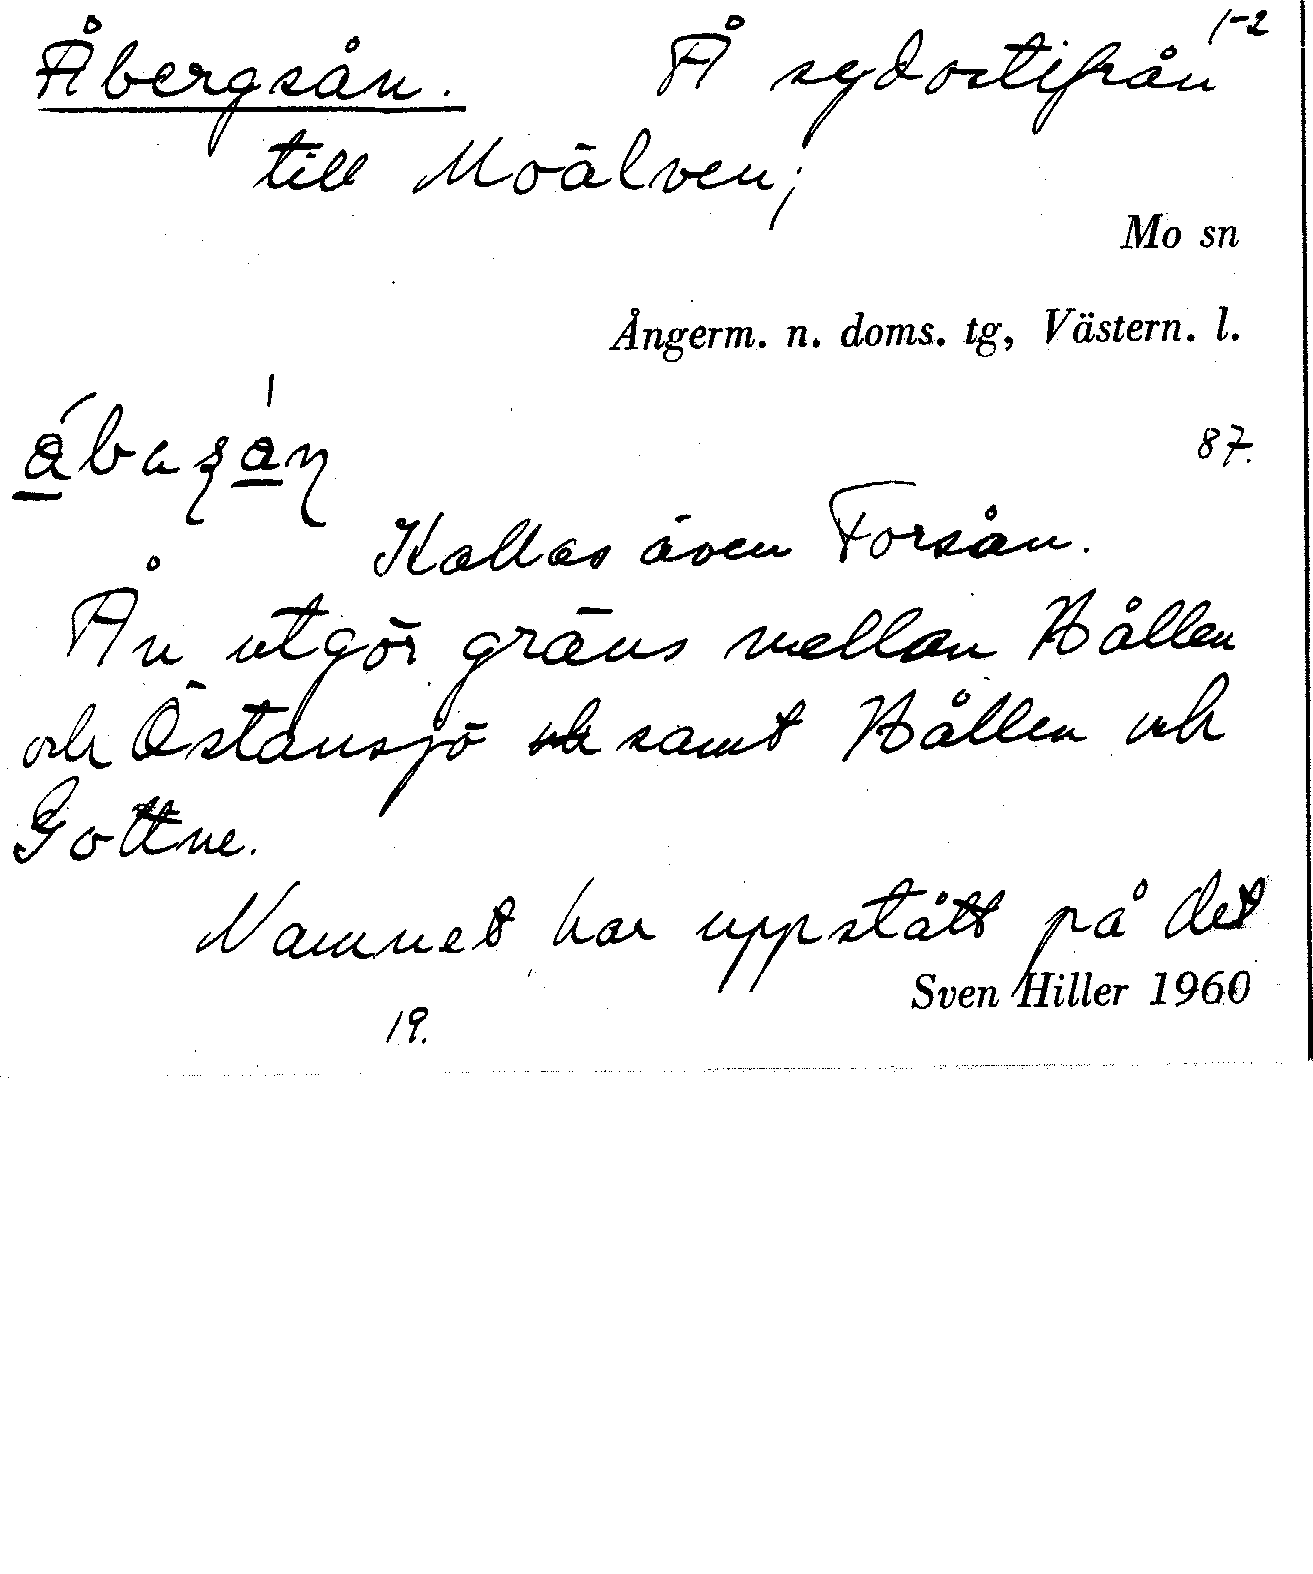 1-2
Åbergsån. Å sydostifrån
till Moälven;
Mo sn
Ångerm. n. doms. tg, Västern. l.
87.
Kallas även Forsån.
Ån utgör gräns mellan Hållen
och Östansjö och samt Hållen och
Gottne.
Namnet har uppstått på det
Sven Hiller 1960
19.